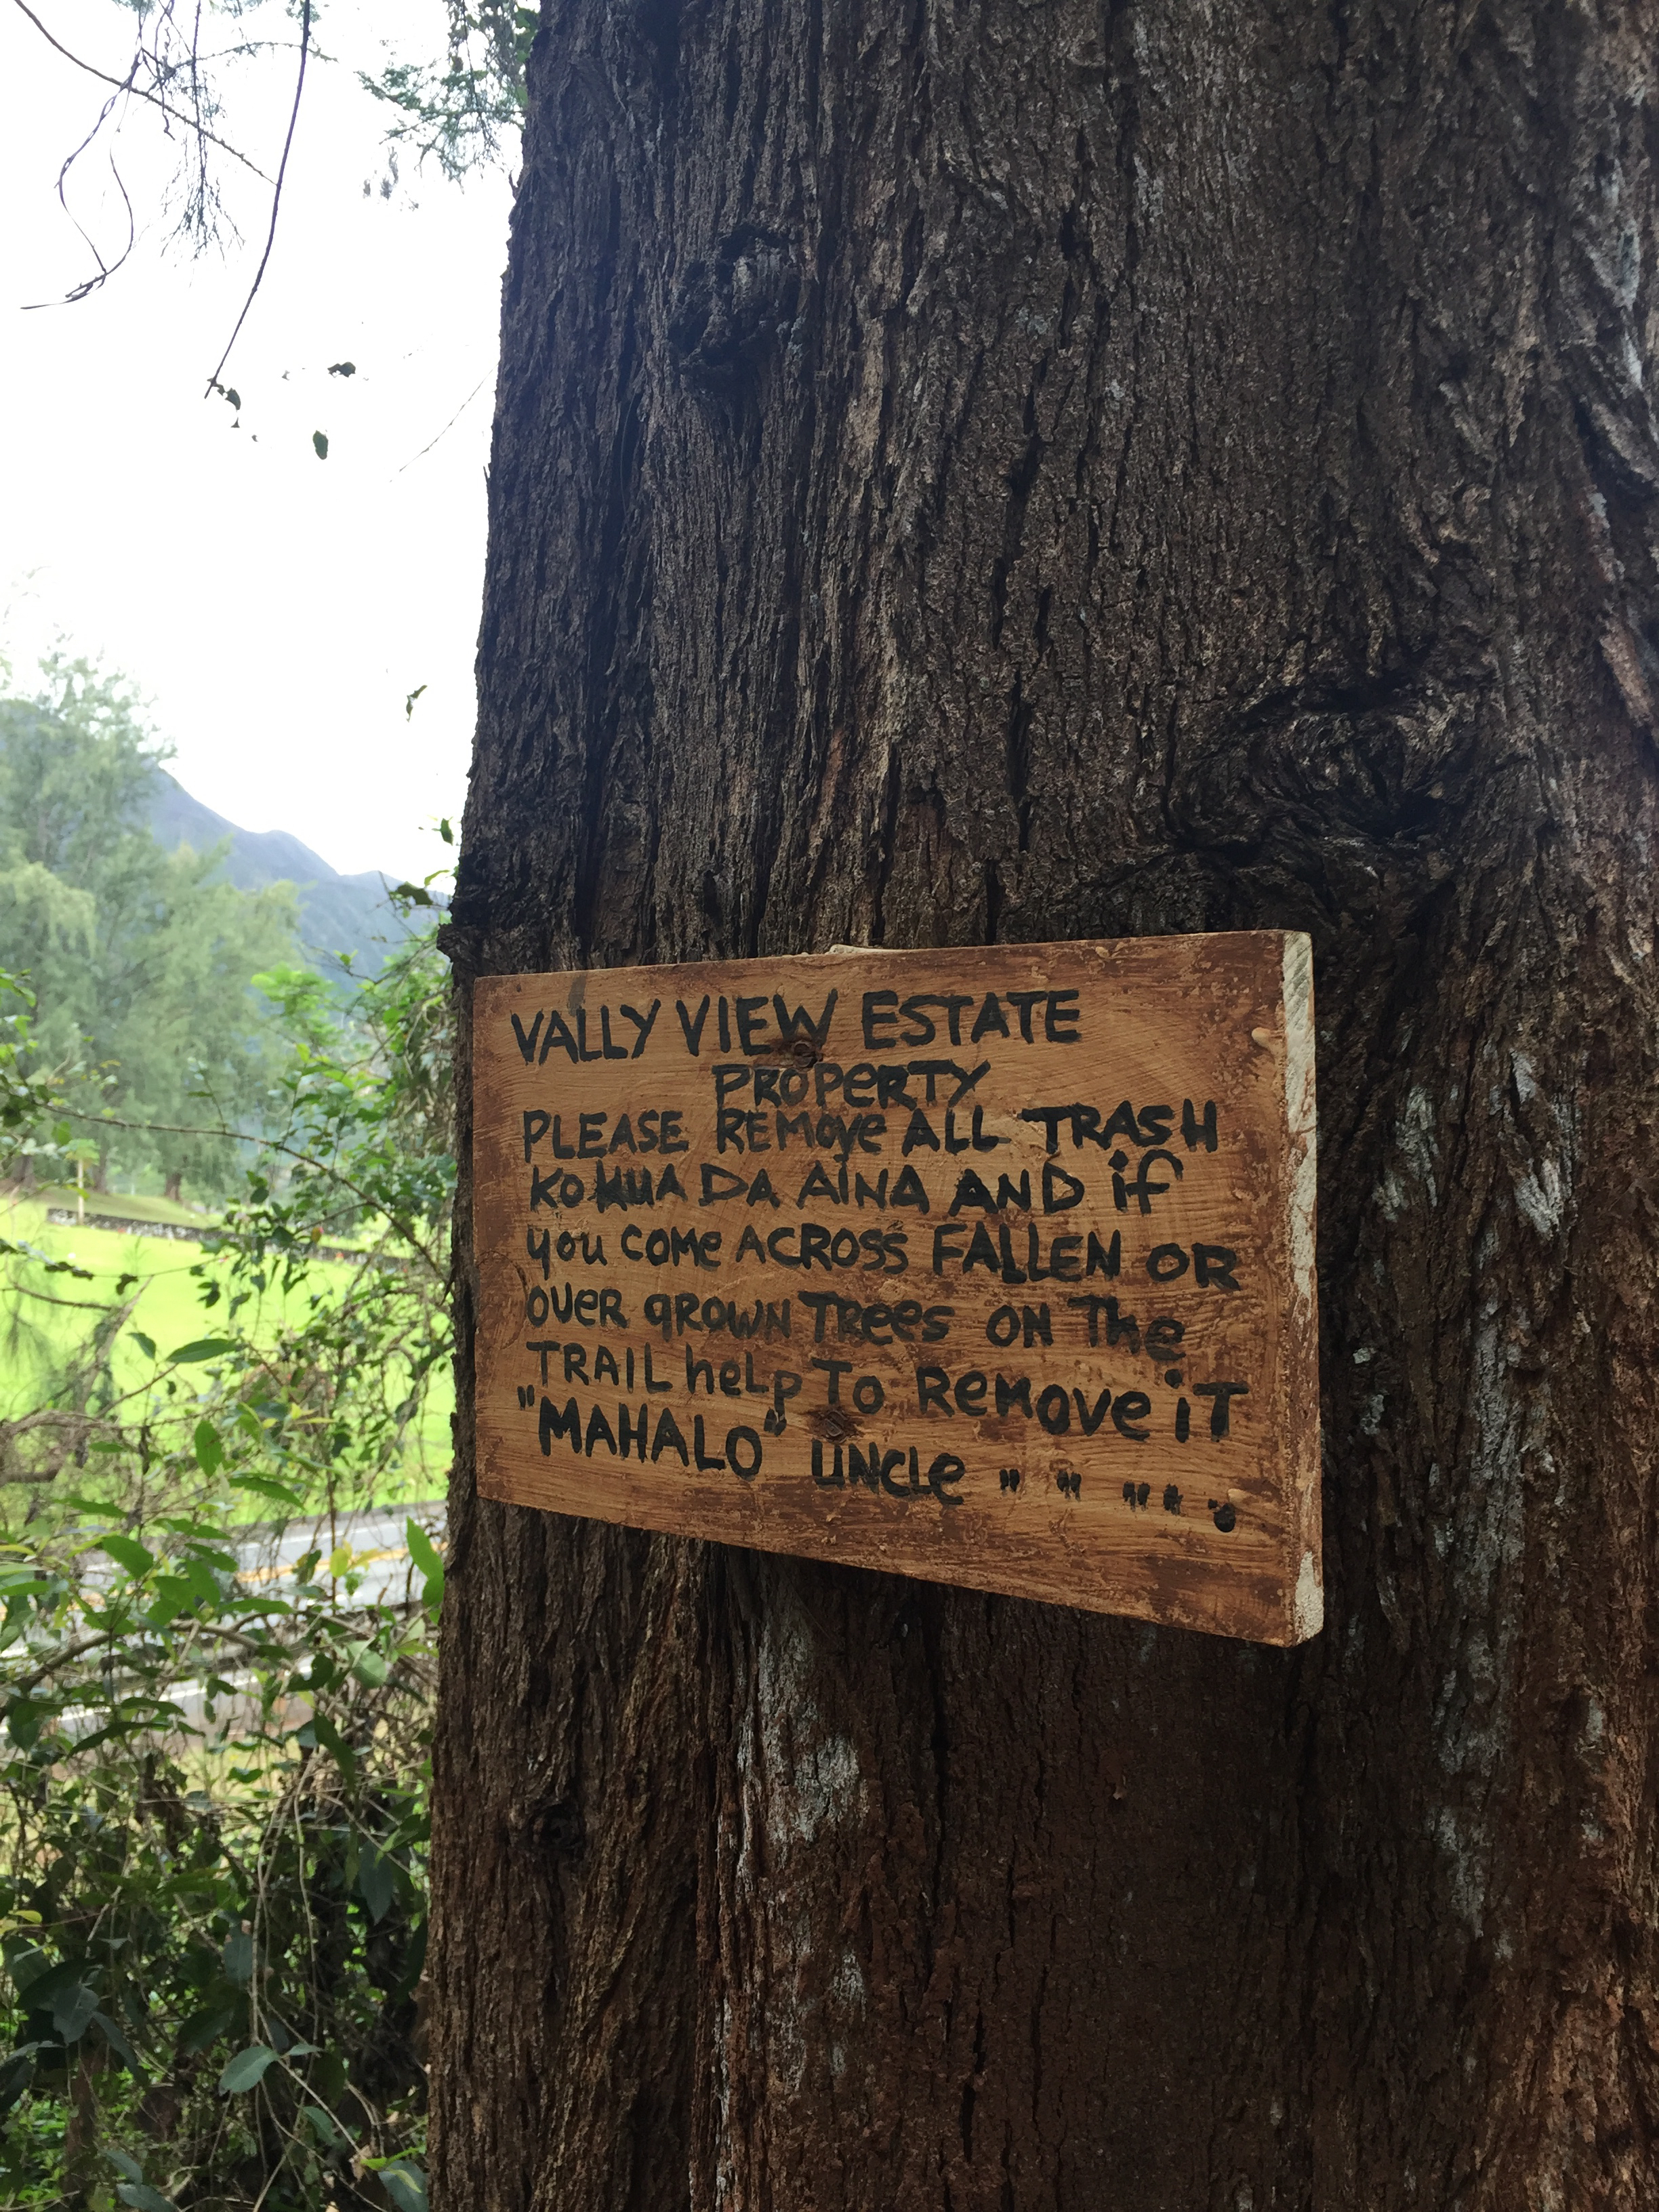 VALLY VIEW ESTATE
PROPERTY
PLEASE REMOVE ALL TRASH
KOKUA DA AINA AND if
you COMe ACROSS FALLEN OR
OVER gROWN TRees ON The
TRAIL heLp To ReMOVe iT
"MAHALO" UNCLe " " " " ;